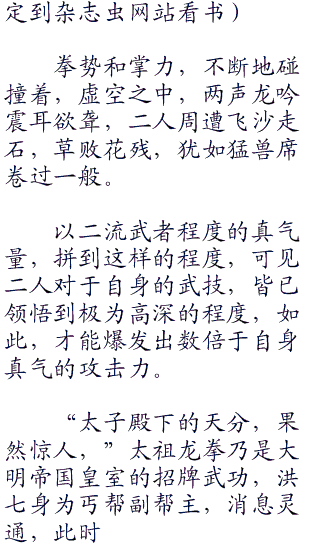 定到杂志虫网站看书）
拳势和掌力，不断地碰
撞着，虚空之中，两声龙吟
震耳欲聋，二人周遭飞沙走
石，草败花残，犹如猛兽席
卷过一般。
以二流武者程度的真气
量，拼到这样的程度，可见
二人对于自身的武技，皆已
领悟到极为高深的程度，如
此，才能爆发出数倍于自身
真气的攻击力。
“太子殿下的天分，果
然惊人，”太祖龙拳乃是大
明帝国皇室的招牌武功，洪
七身为丐帮副帮主，消息灵
通，此时